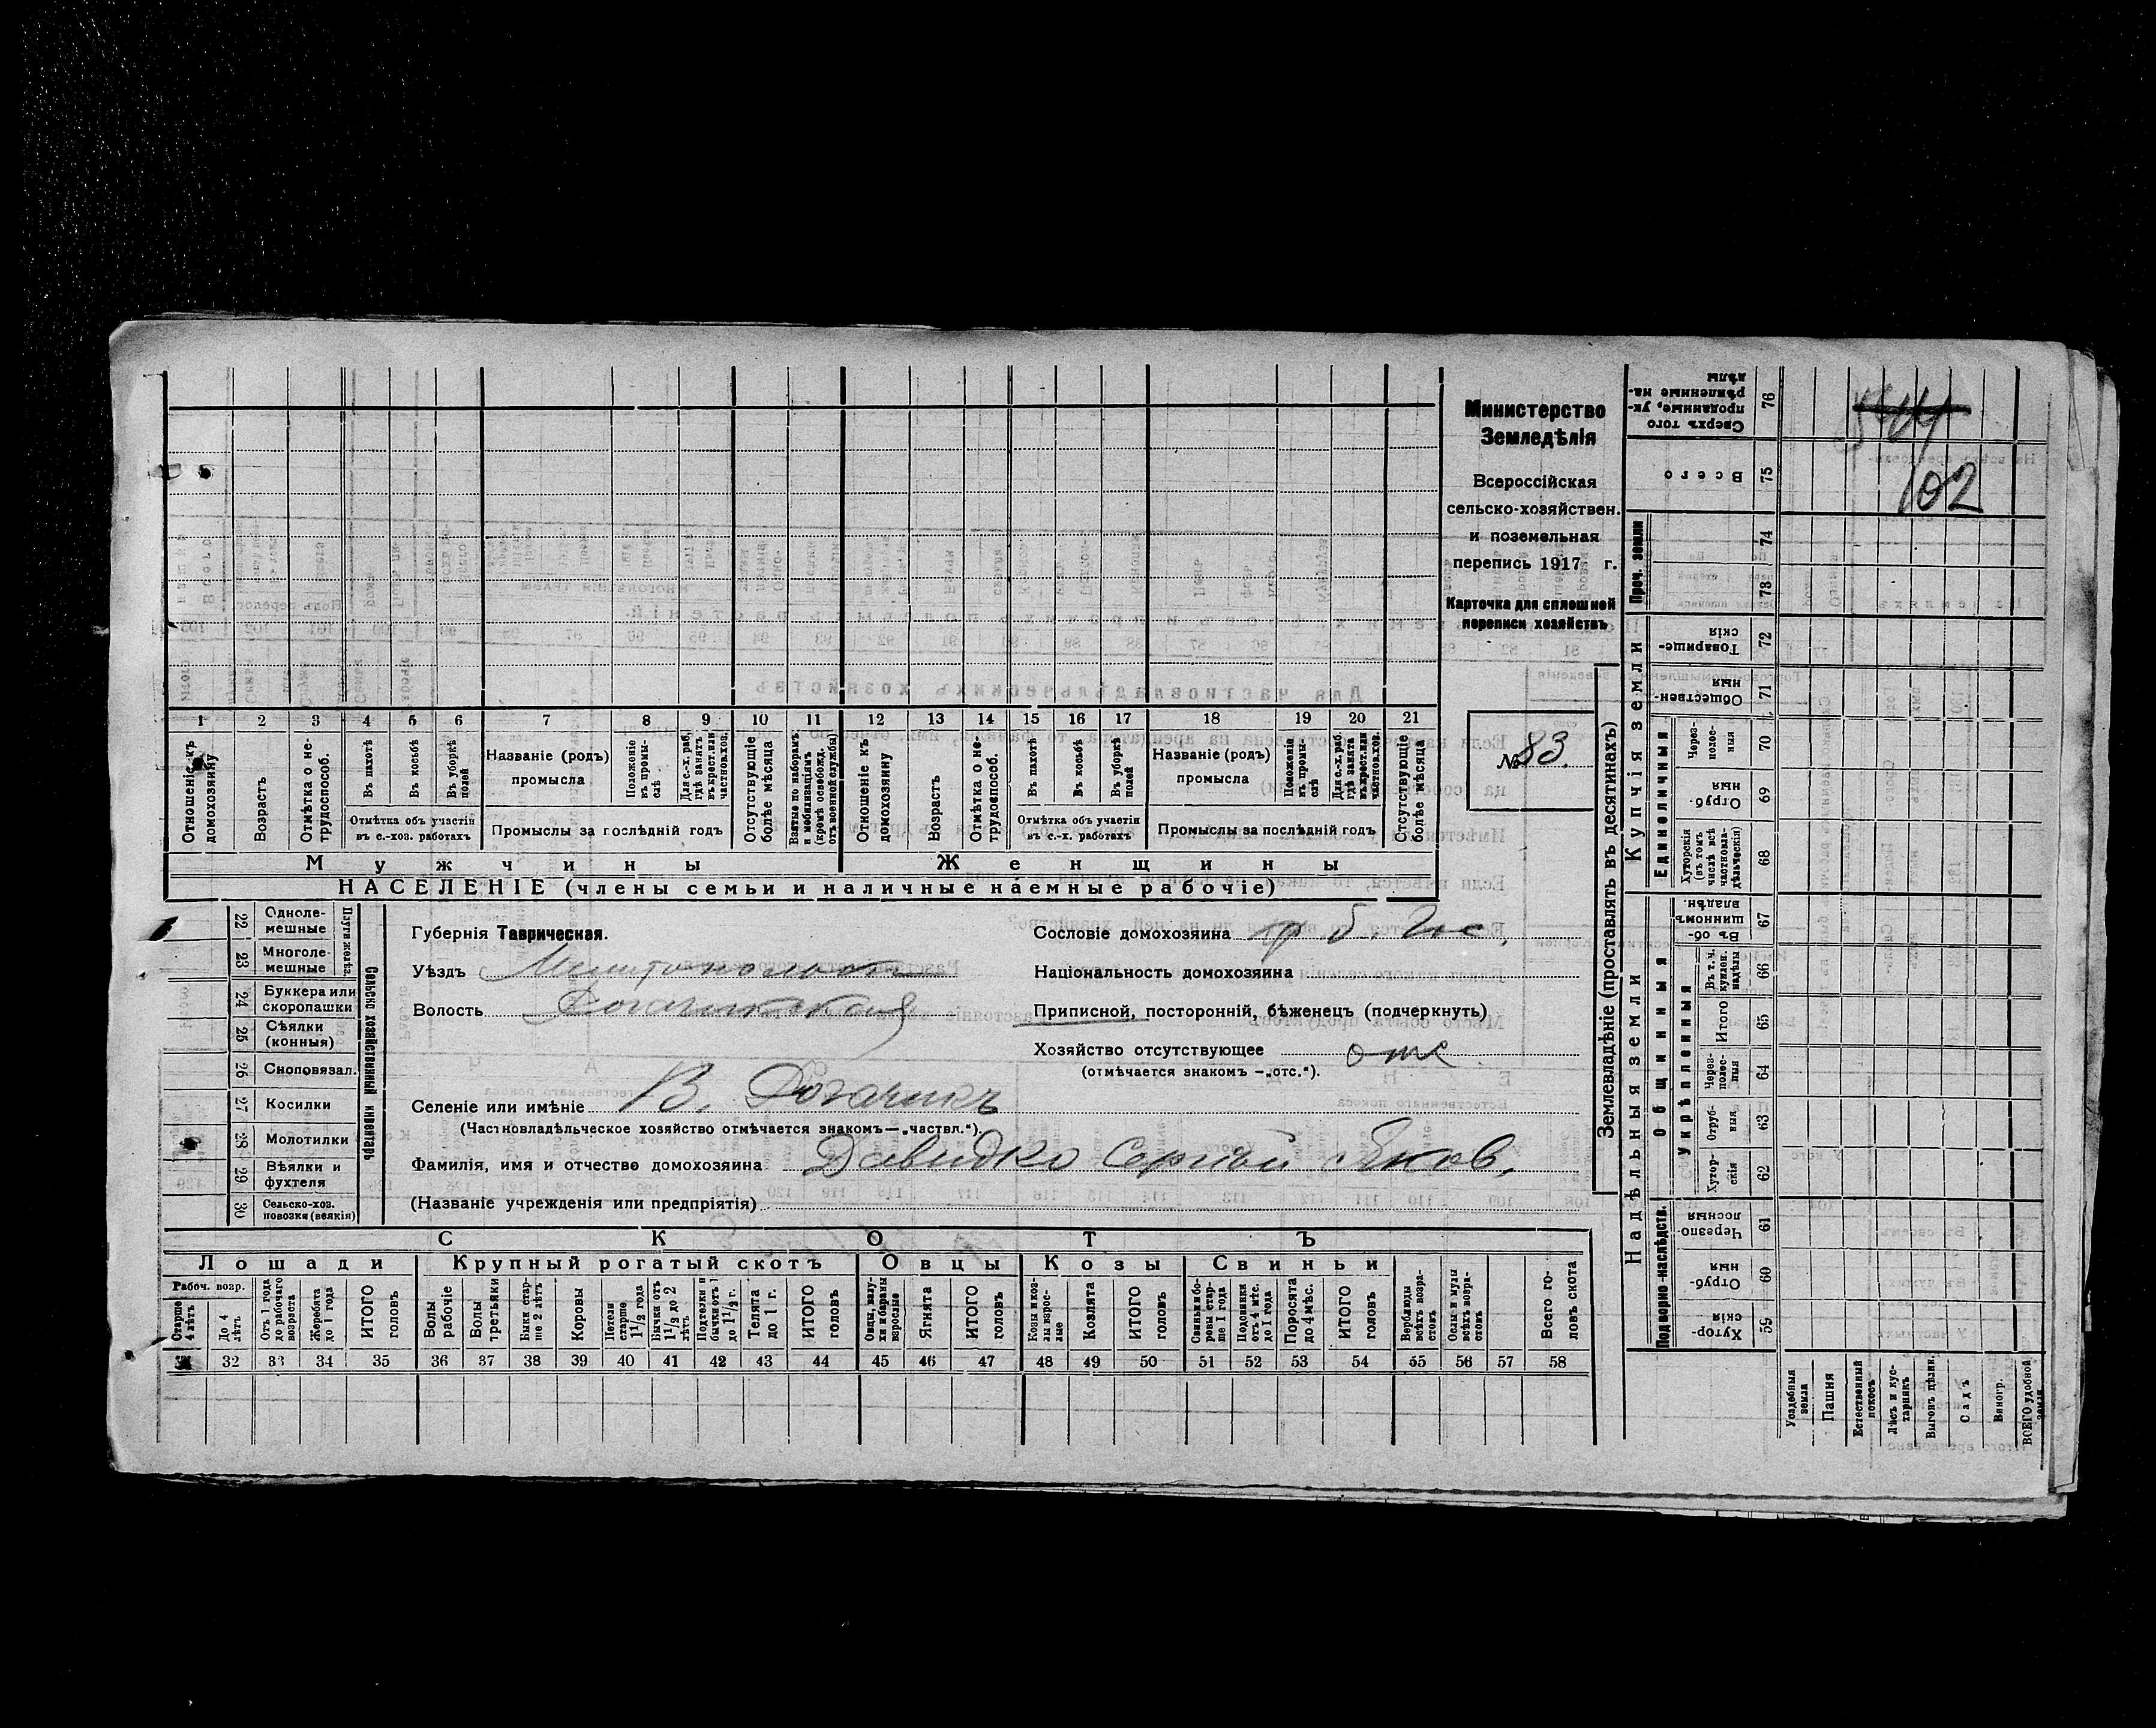 Министерство
Земледѣлія
Всероссійская
сельско-хозяйствен.
и поземельная
перепись 1917 г.
Карточка для сплошной
переписи хозяйствъ
№ 83.
102
1 2 3 4 5 6 7 8 9 10 11 12 13 14 15 16 17 18 19 20 21
Отношеніе къ домохозяину
Возрастъ
Отмѣтка о нетрудоспособ.
Въ пахотѣ
Въ косьбѣ
Въ уборкѣ полей
Отмѣтка объ участіи
въ с.-хоз. работахъ
Названіе (родъ)
промысла
Положеніе въ промыслѣ
Для с.-х. раб. гдѣ занятъ въ крест. или частнов. хоз.
Промыслы за послѣдній годъ
Отсутствующіе болѣе мѣсяца
Взятые по наборамъ и мобилизаціямъ (кромѣ освобожд. отъ военной службы)
Отношеніе къ домохозяину
Возрастъ
Отмѣтка о нетрудоспособ.
Въ пахотѣ
Въ косьбѣ
Въ уборкѣ полей
Отмѣтка объ участіи
въ с.-х. работахъ
Названіе (родъ)
промысла
Положеніе въ промыслѣ
Для с.-х. раб. гдѣ занята въ крест. или частнов. хоз.
Промыслы за послѣдній годъ
Отсутствующіе болѣе мѣсяца
Мужчины Женщины
НАСЕЛЕНІЕ (члены семьи и наличные наемные рабочіе)
22 Однолемешные
23 Многолемешные
Плуги желѣз.
24 Буккера или скоропашки
25 Сѣялки (конныя)
26 Сноповязал.
27 Косилки
28 Молотилки
29 Вѣялки и фухтеля
30 Сельско-хоз. повозки (всякія)
Сельско хозяйственный инвентарь
Губернія Таврическая.
Уѣздъ Мелитопольск
Волость Рогачикская
Селеніе или имѣніе В. Рогачикъ
(Частновладѣльческое хозяйство отмѣчается знакомъ—„частвл.“).
Фамилія, имя и отчество домохозяина Давидко Сергѣй Яков.
(Названіе учрежденія или предпріятія)
Сословіе домохозяина
Національность домохозяина
Приписной, посторонній, бѣженецъ (подчеркнуть)
Хозяйство отсутствующее отс
(отмѣчается знакомъ —„отс.“).
СКОТЪ
Лошади Крупный рогатый скотъ Овцы Козы Свиньи
Рабоч. возр.
Старше 4 лѣтъ
До 4 лѣтъ
Отъ 1 года до рабочаго возраста
Жеребята до 1 года
ИТОГО головъ
Волы рабочіе
Волы третьяки
Быки старше 2 лѣтъ
Коровы
Нетели старше 1 1/2 года
Бычки отъ 1 1/2 до 2 лѣтъ
Подтелки и бычки отъ 1 до 1 1/2 г.
Телята до 1 г.
ИТОГО головъ
Овцы, валухи и бараны взрослые
Ягнята
ИТОГО головъ
Козы и козлы взрослые
Козлята
ИТОГО головъ
Свиньи и боровы старше 1 года
Подсвинки отъ 4 мѣс. до 1 года
Поросята до 4 мѣс.
ИТОГО головъ
Верблюды всѣхъ возрастовъ
Ослы и мулы всѣхъ возрастовъ
Всего головъ скота
32 33 34 35 36 37 38 39 40 41 42 43 44 45 46 47 48 49 50 51 52 53 54 55 56 57 58
Землевладѣніе (проставлять въ десятинахъ)
Сверхъ того проданные, укрѣпленные надѣлы 76
Всего 75
Проч. земли 74
73
Купчія земли
Товарищескія 72
Общественныя 71
Единоличныя
Черезполосныя 70
Отрубныя 69
Хуторскія (въ томъ числѣ всѣ частновладѣльческія) 68
Надѣльныя земли
Общинныя
Въ общинномъ владѣн. 67
Укрѣпленныя
Въ т. ч. куплен. надѣлы 66
Итого 65
Черезполосныя 64
Отрубныя 63
Хуторскія 62
Подворно-наслѣдств.
Черезполосныя 61
Отрубныя 60
Хуторскія 59
Усадебныя земля
Пашня
Естественный покосъ
Лѣсъ и кустарникъ
Выгонъ цѣлин.
Садъ
Виногр.
ВСЕГО удобной земли